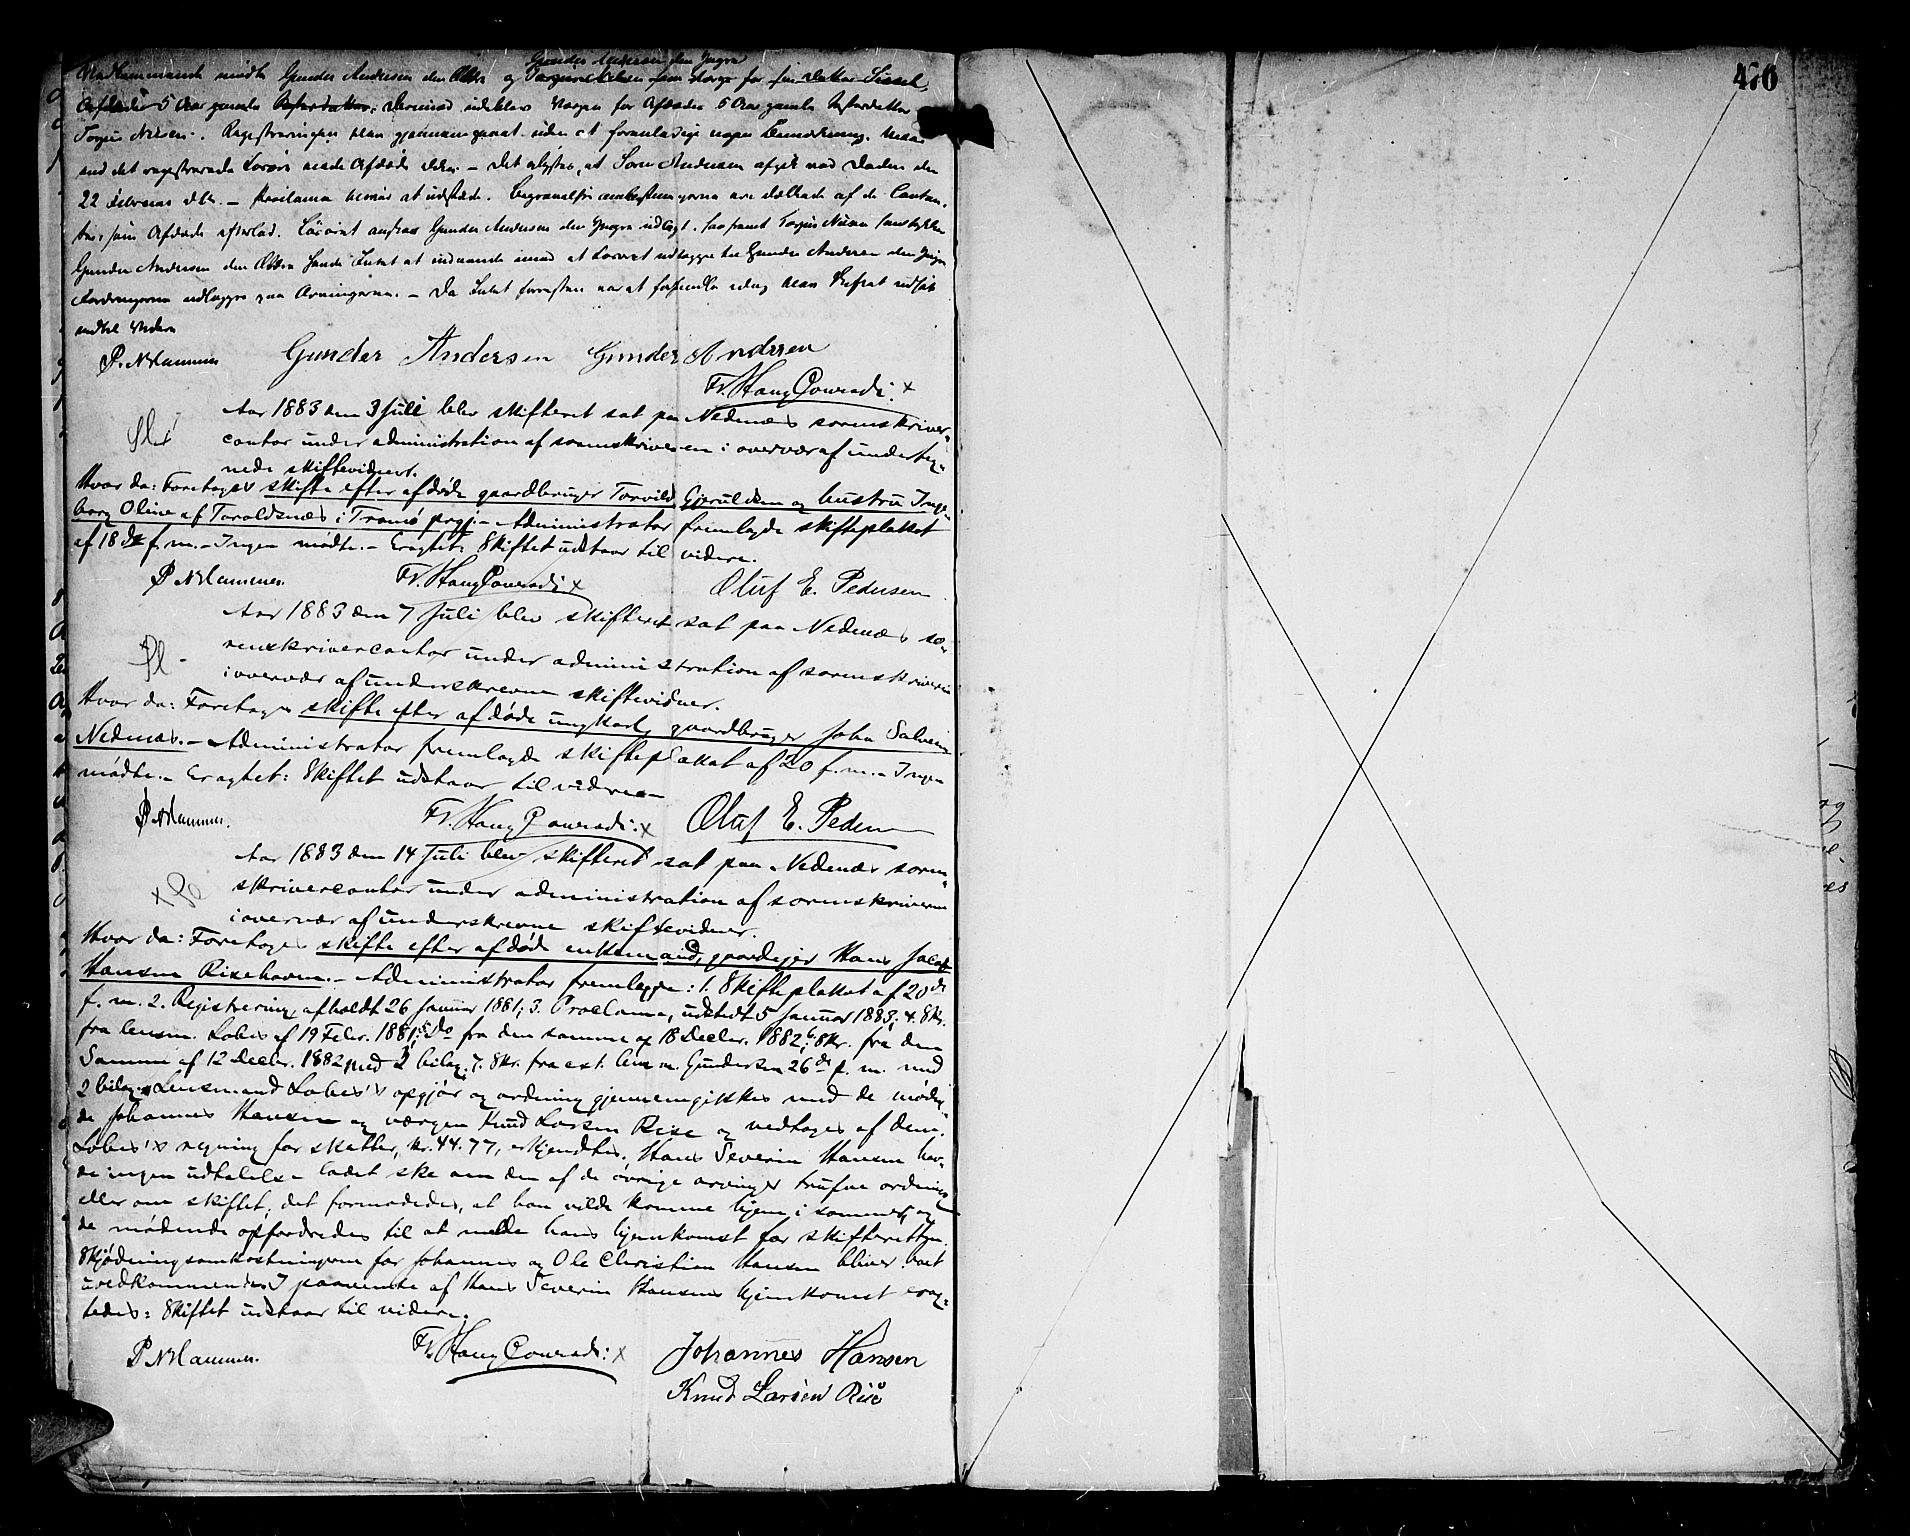 Gunder Andersen den Yngre
Vedkommende mødte Gunder Andersen den Ældre og for sin Datter Sissel,
5 Aar gamle Vergen for Afdødes 5 Aar gamle
Torjus Nilsen. Registreringen blev gjennemgaaet uden at foranledige nogen Bemærkning.
med det registrerede Løsøre eiede Afdøde ikke. – Det oplystes, at Søren Andersen afgik ved Døden den
22 Februar d.A. – Proclama besvær at udstede. Begravelses
som Afdøde efterlod. Løsøret Gunder Andersen den Yngre udlagt. Torjus Nilsen
Gunder Andersen den Ældre havde Intet at indvende imod at Løsøret udlægges til Gunder Andersen den Yngre
Fordringerne udlægges paa Arvingerne. – Da Intet forresten var at forhandle idag blev Skiftet udsat
indtil Videre
P. N. Hammer Gunder Andersen Gunder Andersen
Fr. Haug Conradi: x
Aar 1883 den 3 Juli blev skifteret sat paa Nedenæs sorenskriver-
contor under administration af sorenskriveren i overvær af underteg-
nede skiftevidner.
Hvor da: Foretoges skifte efter afdøde gaardbruger Torvild Gjeruldsen og hustru Inge-
borg Oline af Toroldsnæs i Tromø prgj. – Administrator fremlagde skifteplakat
af 18de f. m. – Ingen mødte. – Eragtet: Skiftet udstaar til videre.
P N Hammer. Fr. Haug Conradi: x Oluf E. Pedersen
Aar 1883 den 7 Juli blev skifteret sat paa Nedenæs so-
renskrivercontor under administration af sorenskriveren
i overvær af underskrevne skiftevidner.
Hvor da: Foretoges skifte efter afdøde ungkarl, gaardbruger John Salvesen
Nedenæs. – Administrator fremlagde skifteplakat af 20 f. m. – Ingen
mødte. – Eragtet: Skiftet udstaar til videre –
P N Hammer. Fr. Haug Conradi: x Oluf E. Pedersen
Aar 1883 den 14 Juli blev skifteret sat paa Nedenæs soren-
skrivercontor under administration af sorenskriveren
i overvær af underskrevne skiftevidner.
Hvor da: Foretoges skifte efter afdøde enkemand, gaardejer Hans Jacob
Hansen Risehavn. – Administrator fremlagde: 1. Skifteplakat af 20de
f. m. 2. Registrering, afholdt 26 Januar 1881; 3. Proclama, udstedt 5 Januar 1883; 4. Skr.
fra lensm. Lobes af 19 Febr. 1881; 5. Do fra den samme af 18 Decbr. 1882; 6. Skr. fra den
Samme af 12 Decbr. 1882 med 3 bilag; 7. Skr. fra ext. lensm. Gundersen 26de f. m. med
2 bilag. Lensmand Lobes's opgjør og ordning gjennemgikkes med de møden-
de Johannes Hansen og værgen Knud Larsen Rise og vedtoges af dem.
Lobes's regning for skatter, kr. 44.77, erkjendtes. Hans Severin Hansen hav-
de ingen udtalelse ladet ske om den af de øvrige arvinger trufne ordning
eller om skiftet; det formodedes, at han vilde komme hjem i sommer, og
de mødende opfordredes til at melde hans hjemkomst for skifteretten.
Skjødningsomkostningerne for Johannes og Ole Christian Hansen bliver boet
uvedkommende. I paavente af Hans Severin Hansens hjemkomst erag-
tedes: Skiftet udstaar til videre.
P N Hammer. Fr. Haug Conradi: x Johannes Hansen
Knud Larsen Rise
470